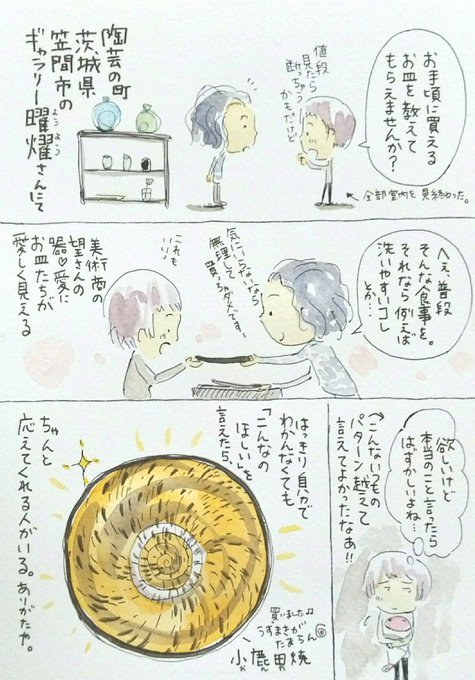 陶芸の町
茨城県
笠間市の
ギャラリー曜燿さんにて
ようよう
お手頃に買える
お皿を教えて
もらえませんか?
値段
見たら
断っちゃう
かもだけど
←全部室内を見終わった。
へぇ、普段
そんな食事を。
それなら例えば
洗いやすいコレ
とか…
気にいらないなら
無理して
買っちゃダメです。
これも
いい♪
美術商の
望さんの
器♡愛に
お皿たちが
愛しく見える
欲しいけど
本当のこと言ったら
はずかしいよね…
↑こんないつもの
パターン越えて
言えてよかったなぁ!!
はっきり自分で
わかんなくても
「こんなの
ほしい」を
言えたら、
ちゃんと
応えてくれる人がいる。ありがたや。
買いました♪
うずまきが
たまらん
小鹿田焼
おんた